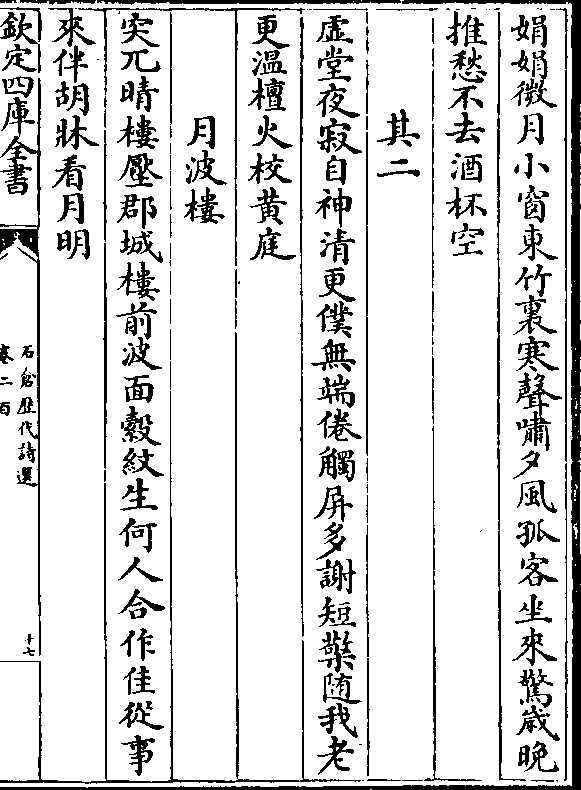 娟娟微月小窗東竹裏寒聲嘯夕風孤客坐來驚歳晚
推愁不去酒杯空
其二
虛堂夜寂自神清更僕無端倦觸屏多謝短檠随我老
更温檀火校黄庭
月波樓
突兀晴樓壓郡城樓前波面縠紋生何人合作佳從事
來伴胡牀看月明
欽定四庫全書
石倉歷代詩選
卷二百
十七